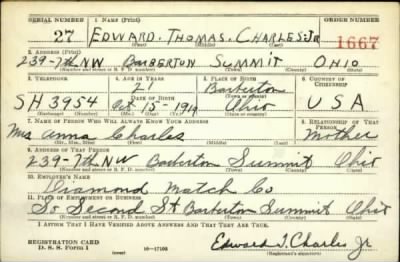 SERIAL NUMBER 1. NAME (Print) ORDER NUMBER
27 EDWARD. THOMAS. CHARLES. JR 1667
(First) (Middle) (Last)
2. ADDRESS (Print)
239-7th NW BARBERTON SUMMIT OHIO
(Number and street or R. F. D. number) (Town) (County) (State)
3. TELEPHONE 4. AGE IN YEARS 5. PLACE OF BIRTH 6. COUNTRY OF CITIZENSHIP
21 Barberton
SH 3954 DATE OF BIRTH Ohio USA
Oct 15-1919
(Exchange) (Number) (Mo.) (Day) (Yr.) (State or country)
7. NAME OF PERSON WHO WILL ALWAYS KNOW YOUR ADDRESS 8. RELATIONSHIP OF THAT PERSON
Mrs Anna Charles Mother
9. ADDRESS OF THAT PERSON
239-7th NW Barberton Summit Ohio
(Number and street or R. F. D. number) (Town) (County) (State)
10. EMPLOYER'S NAME
Diamond Match Co
11. PLACE OF EMPLOYMENT OR BUSINESS
So Second St Barberton Summit Ohio
(Number and street or R. F. D. number) (Town) (County) (State)
I AFFIRM THAT I HAVE VERIFIED ABOVE ANSWERS AND THAT THEY ARE TRUE.
REGISTRATION CARD
D. S. S. Form 1 (over) 16-17105 Edward T. Charles Jr
(Registrant's signature)